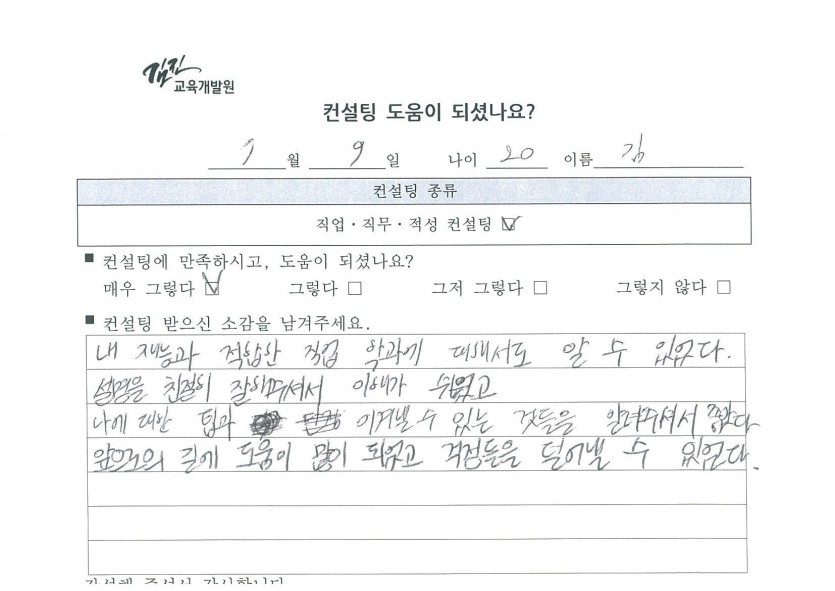 김진
교육개발원
컨설팅 도움이 되셨나요?
9 월 9 일 나이 20 이름 김
컨설팅 종류
직업·직무·적성 컨설팅
■ 컨설팅에 만족하시고, 도움이 되셨나요?
매우 그렇다 그렇다 그저 그렇다 그렇지 않다
■ 컨설팅 받으신 소감을 남겨주세요.
내 재능과 적합한 직업 학과에 대해서도 알 수 있었다.
설명을 친절히 잘해주셔서 이해가 쉬웠고
나에 대한 팁과 이겨낼 수 있는 것들을 알려주셔서 좋았다
앞으로의 길에 도움이 많이 되었고 걱정들을 덜어낼 수 있었다.